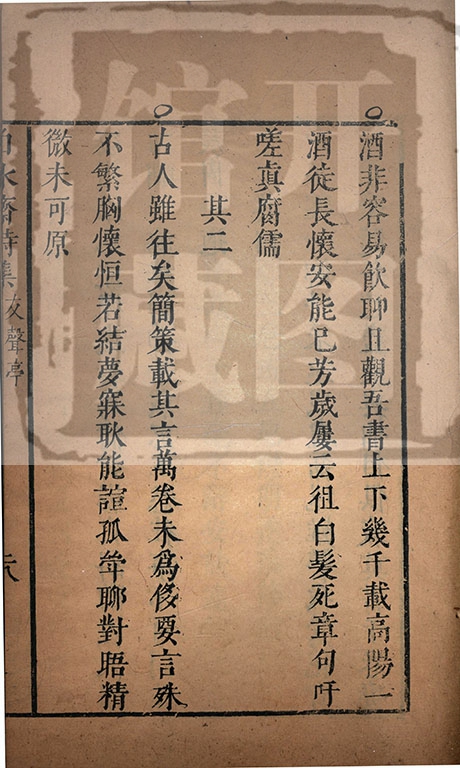 酒非容易飲聊且觀吾書上下幾千載高陽一
酒徒長懷安能已芳歲屢云徂白髮死章句吁
嗟真腐儒
其二
古人雖往矣簡策載其言萬卷未爲侈要言殊
不繁胸懷恒若結夢寐耿能諠孤檠聊對晤精
微未可原
白水齋詩集友聲亭
六
开图
馆藏